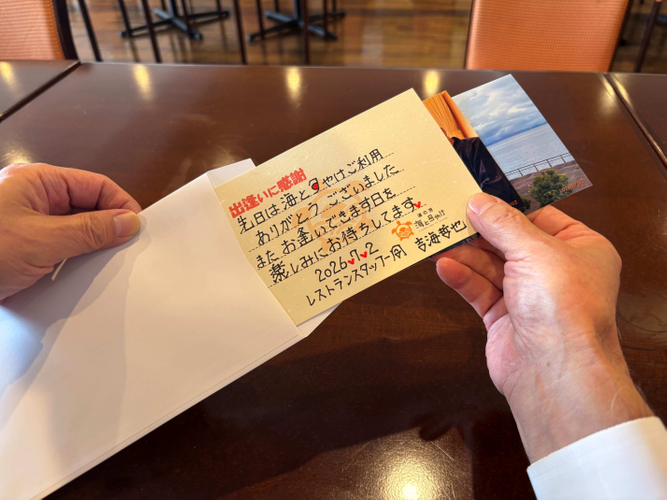 出逢いに感謝
先日は海と夕やけご利用
ありがとうございました
またお逢いできます日を
楽しみにお待ちしてます。
2026♥7♥2
海と夕やけ
レストランスタッフ一同
吉海哲也